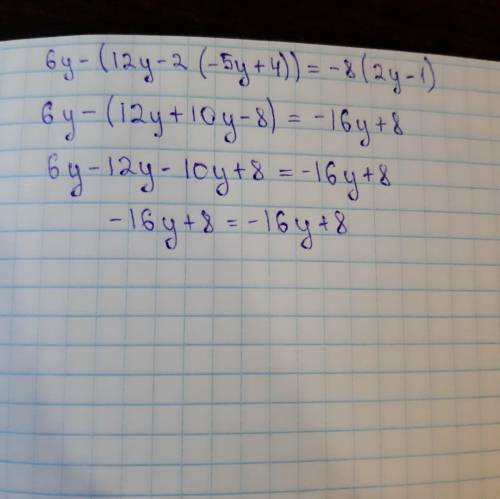 6y-(12y-2(-5y+4))=-8(2y-1)
6y-(12y+10y-8)=-16y+8
6y-12y-10y+8=-16y+8
-16y+8=-16y+8